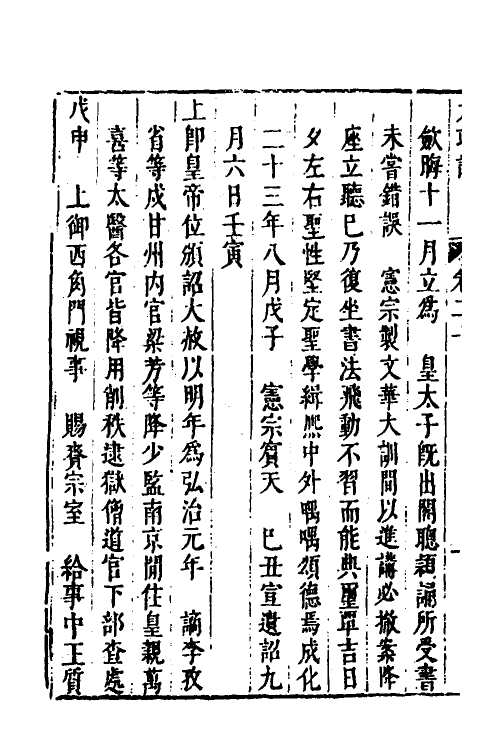 歛晦十一月立爲　皇太子旣出閣聽讀誦所受書
未嘗錯誤　憲宗製文華大訓間以進講必撤案降
座立聽已乃復坐書法飛動不習而能典璽覃吉日
夕左右聖性堅定聖學緝熈中外喁喁頌德焉成化
二十三年八月戊子　憲宗賔天　巳丑宣遺詔九
月六日壬寅
上卽皇帝位頒詔大赦以明年爲弘治元年　謫李孜
省等戍甘州内官梁芳等降少監南京閒住皇親萬
喜等太醫各官皆降用削秩逮獄僧道官下部查處
戊申　上御西角門視事　賜賚宗室　給事中王質